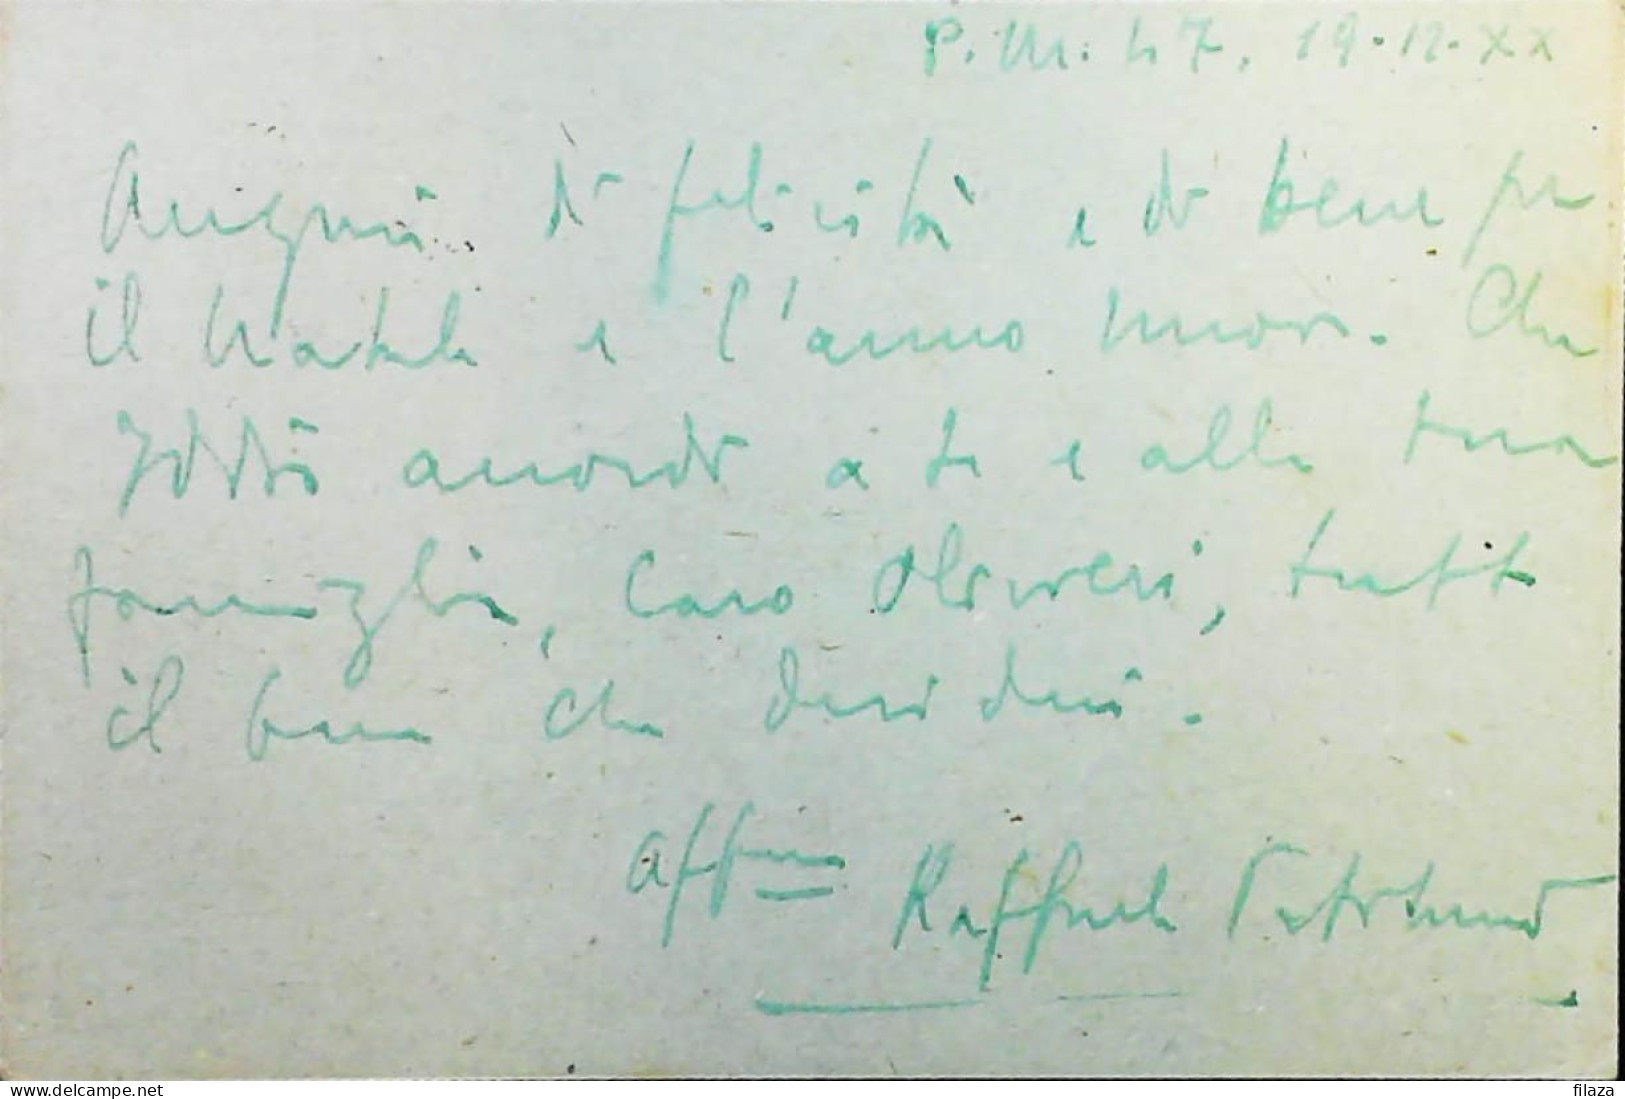 P.M. 47. 19.12.XX
Auguri di felicità e di bene per
il Natale e l'anno nuovo. Che
Iddio accordi a te e alla tua
famiglia, caro Oliveri, tutto
il bene che desideri.
Aff.mo Raffaele
www.delcampe.net
filaza